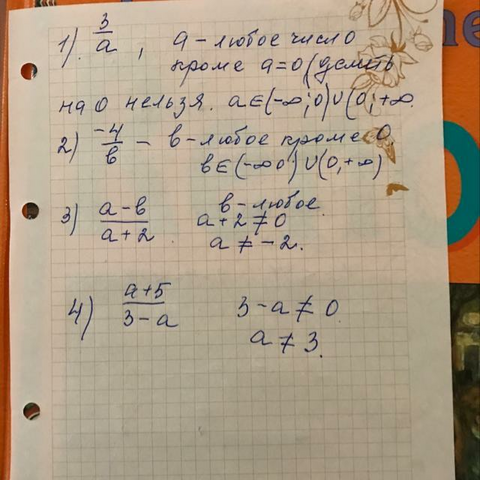 1). 3/a , a – любое число
кроме a=0 (делить
на 0 нельзя. a∈(-∞;0)∪(0;+∞
2) -4/в – в – любое кроме 0.
в∈(-∞ 0)∪(0,+∞)
3) a-в/a+2 в – любое.
a+2≠0
a≠-2.
4) a+5/3-a 3-a≠0
a≠3.